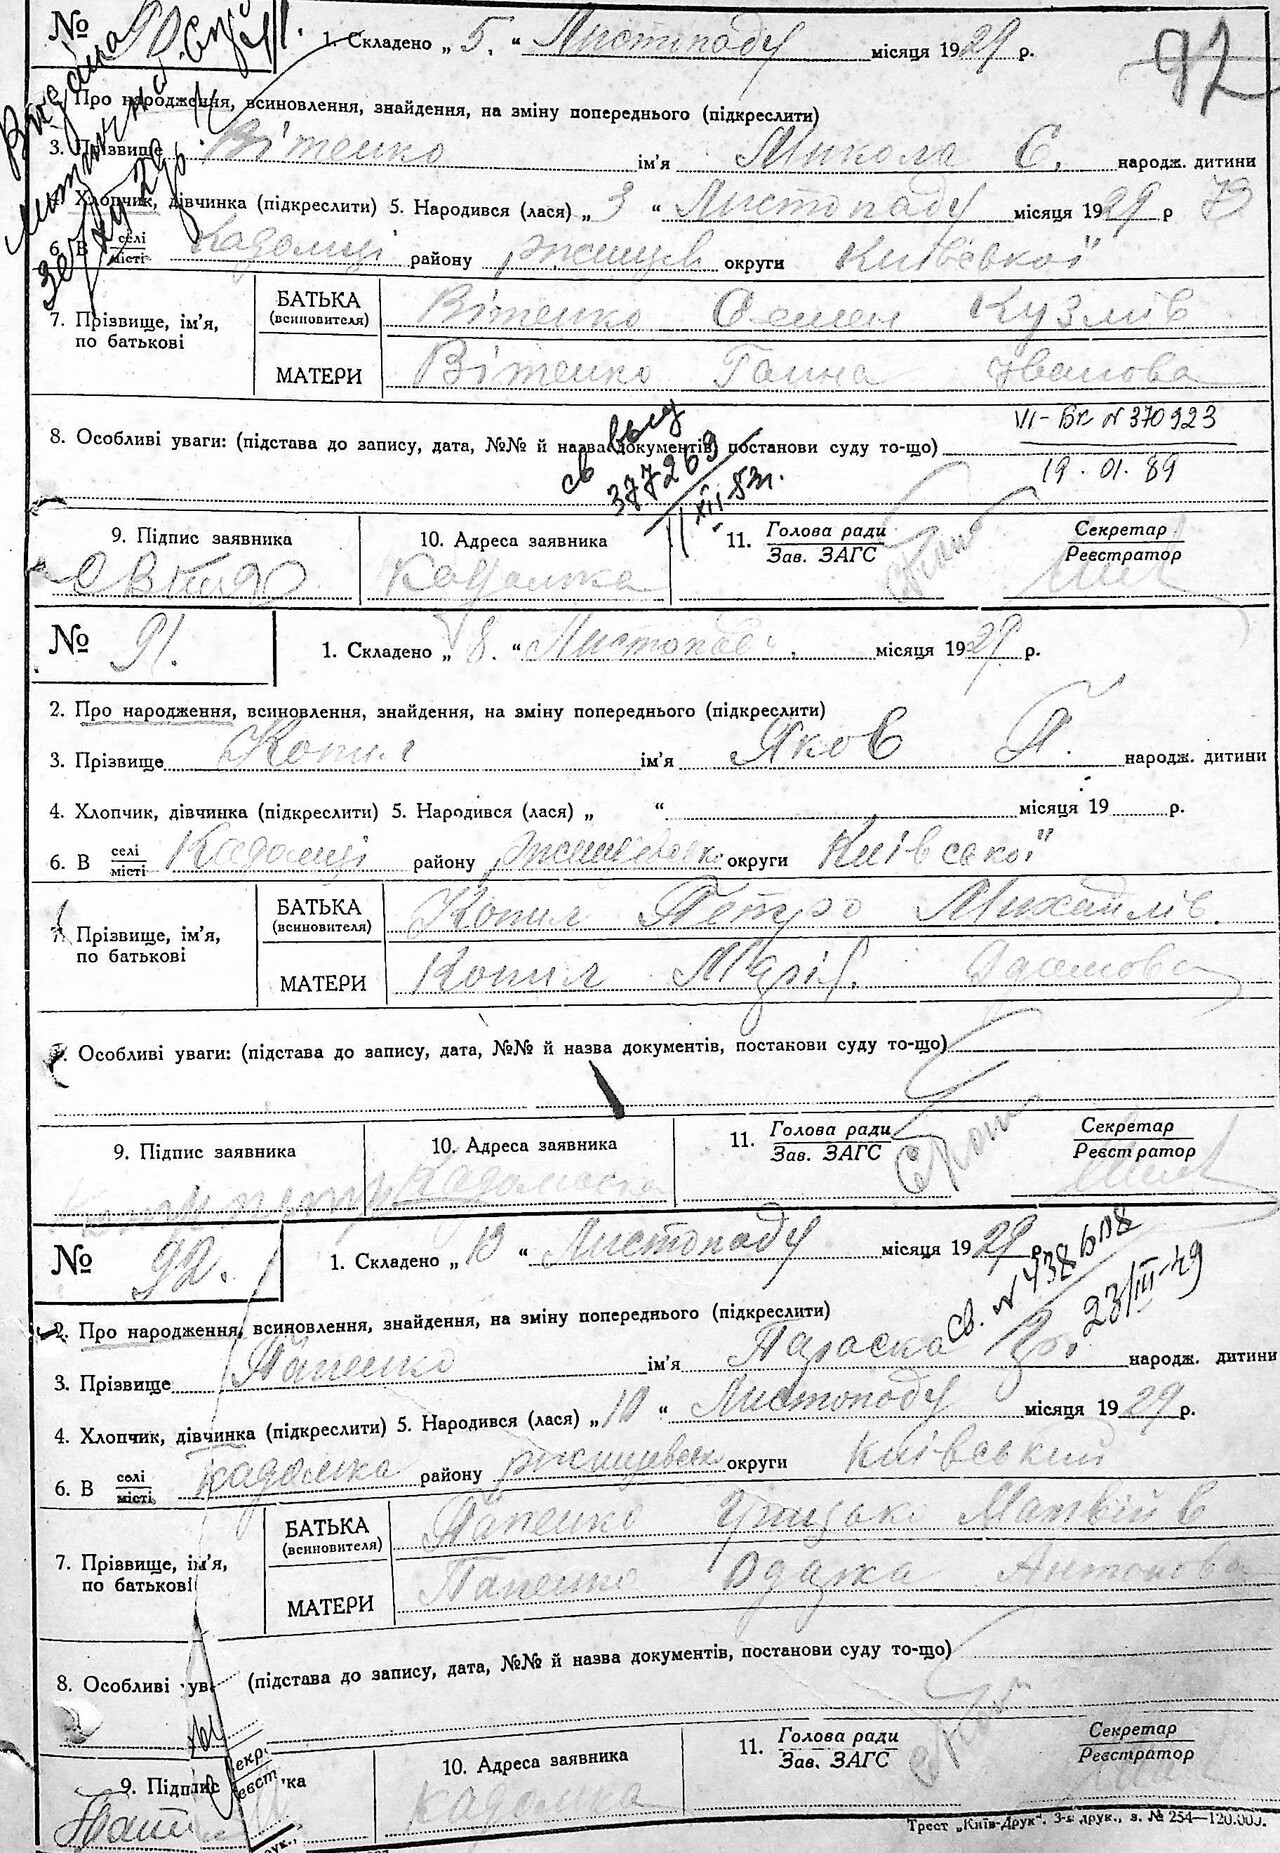 № 90.
1. Складено „ 5. “ Листопаду місяця 1929 р.
92
2. Про народження, всиновлення, знайдення, на зміну попереднього (підкреслити)
3. Прізвище Вітенко ім'я Микола С. народж. дитини
4. Хлопчик, дівчинка (підкреслити) 5. Народився (лася) „ 3 “ Листопаду місяця 1929 р
6. В селі/місті Кадомці району Ржищев округи Київської
7. Прізвище, ім'я, по батькові
БАТЬКА (всиновителя) Вітенко Семен Кузмів
МАТЕРИ Вітенко Ганна Іванова
VI-БК N 370923
8. Особливі уваги: (підстава до запису, дата, №№ й назва документів, постанови суду то-що)
19.01.89
св выд
377269
11 XII 53г.
9. Підпис заявника
10. Адреса заявника Кадомка
11. Голова ради/Зав. ЗАГС
Секретар/Реєстратор
№ 91.
1. Складено „ 8. “ Листопад місяця 1929 р.
2. Про народження, всиновлення, знайдення, на зміну попереднього (підкреслити)
3. Прізвище Копил ім'я Яков П. народж. дитини
4. Хлопчик, дівчинка (підкреслити) 5. Народився (лася) „ “ місяця 19 р.
6. В селі/місті Кадомці району Ржищевськ округи Київської
7. Прізвище, ім'я, по батькові
БАТЬКА (всиновителя) Копил Петро Михайлів.
МАТЕРИ Копил Марія Адамова
8. Особливі уваги: (підстава до запису, дата, №№ й назва документів, постанови суду то-що)
9. Підпис заявника
10. Адреса заявника
11. Голова ради/Зав. ЗАГС
Секретар/Реєстратор
№ 92.
1. Складено „ 13 “ Листопаду місяця 1929 р.
св. N 438608
23/III-49
2. Про народження, всиновлення, знайдення, на зміну попереднього (підкреслити)
3. Прізвище Папенко ім'я Параска Гр. народж. дитини
4. Хлопчик, дівчинка (підкреслити) 5. Народився (лася) „ 10 “ Листопаду місяця 1929 р.
6. В селі/місті Кадомка району Ржищевськ округи Київський
7. Прізвище, ім'я, по батькові
БАТЬКА (всиновителя) Папенко Грицько Матвійів
МАТЕРИ Папенко Одарка Антонова
8. Особливі ув (підстава до запису, дата, №№ й назва документів, постанови суду то-що)
9. Підпис ка
10. Адреса заявника Кадомка
11. Голова ради/Зав. ЗАГС
Секретар/Реєстратор
Трест „Київ-Друк“. 3-я друк., з. № 254—120.000.